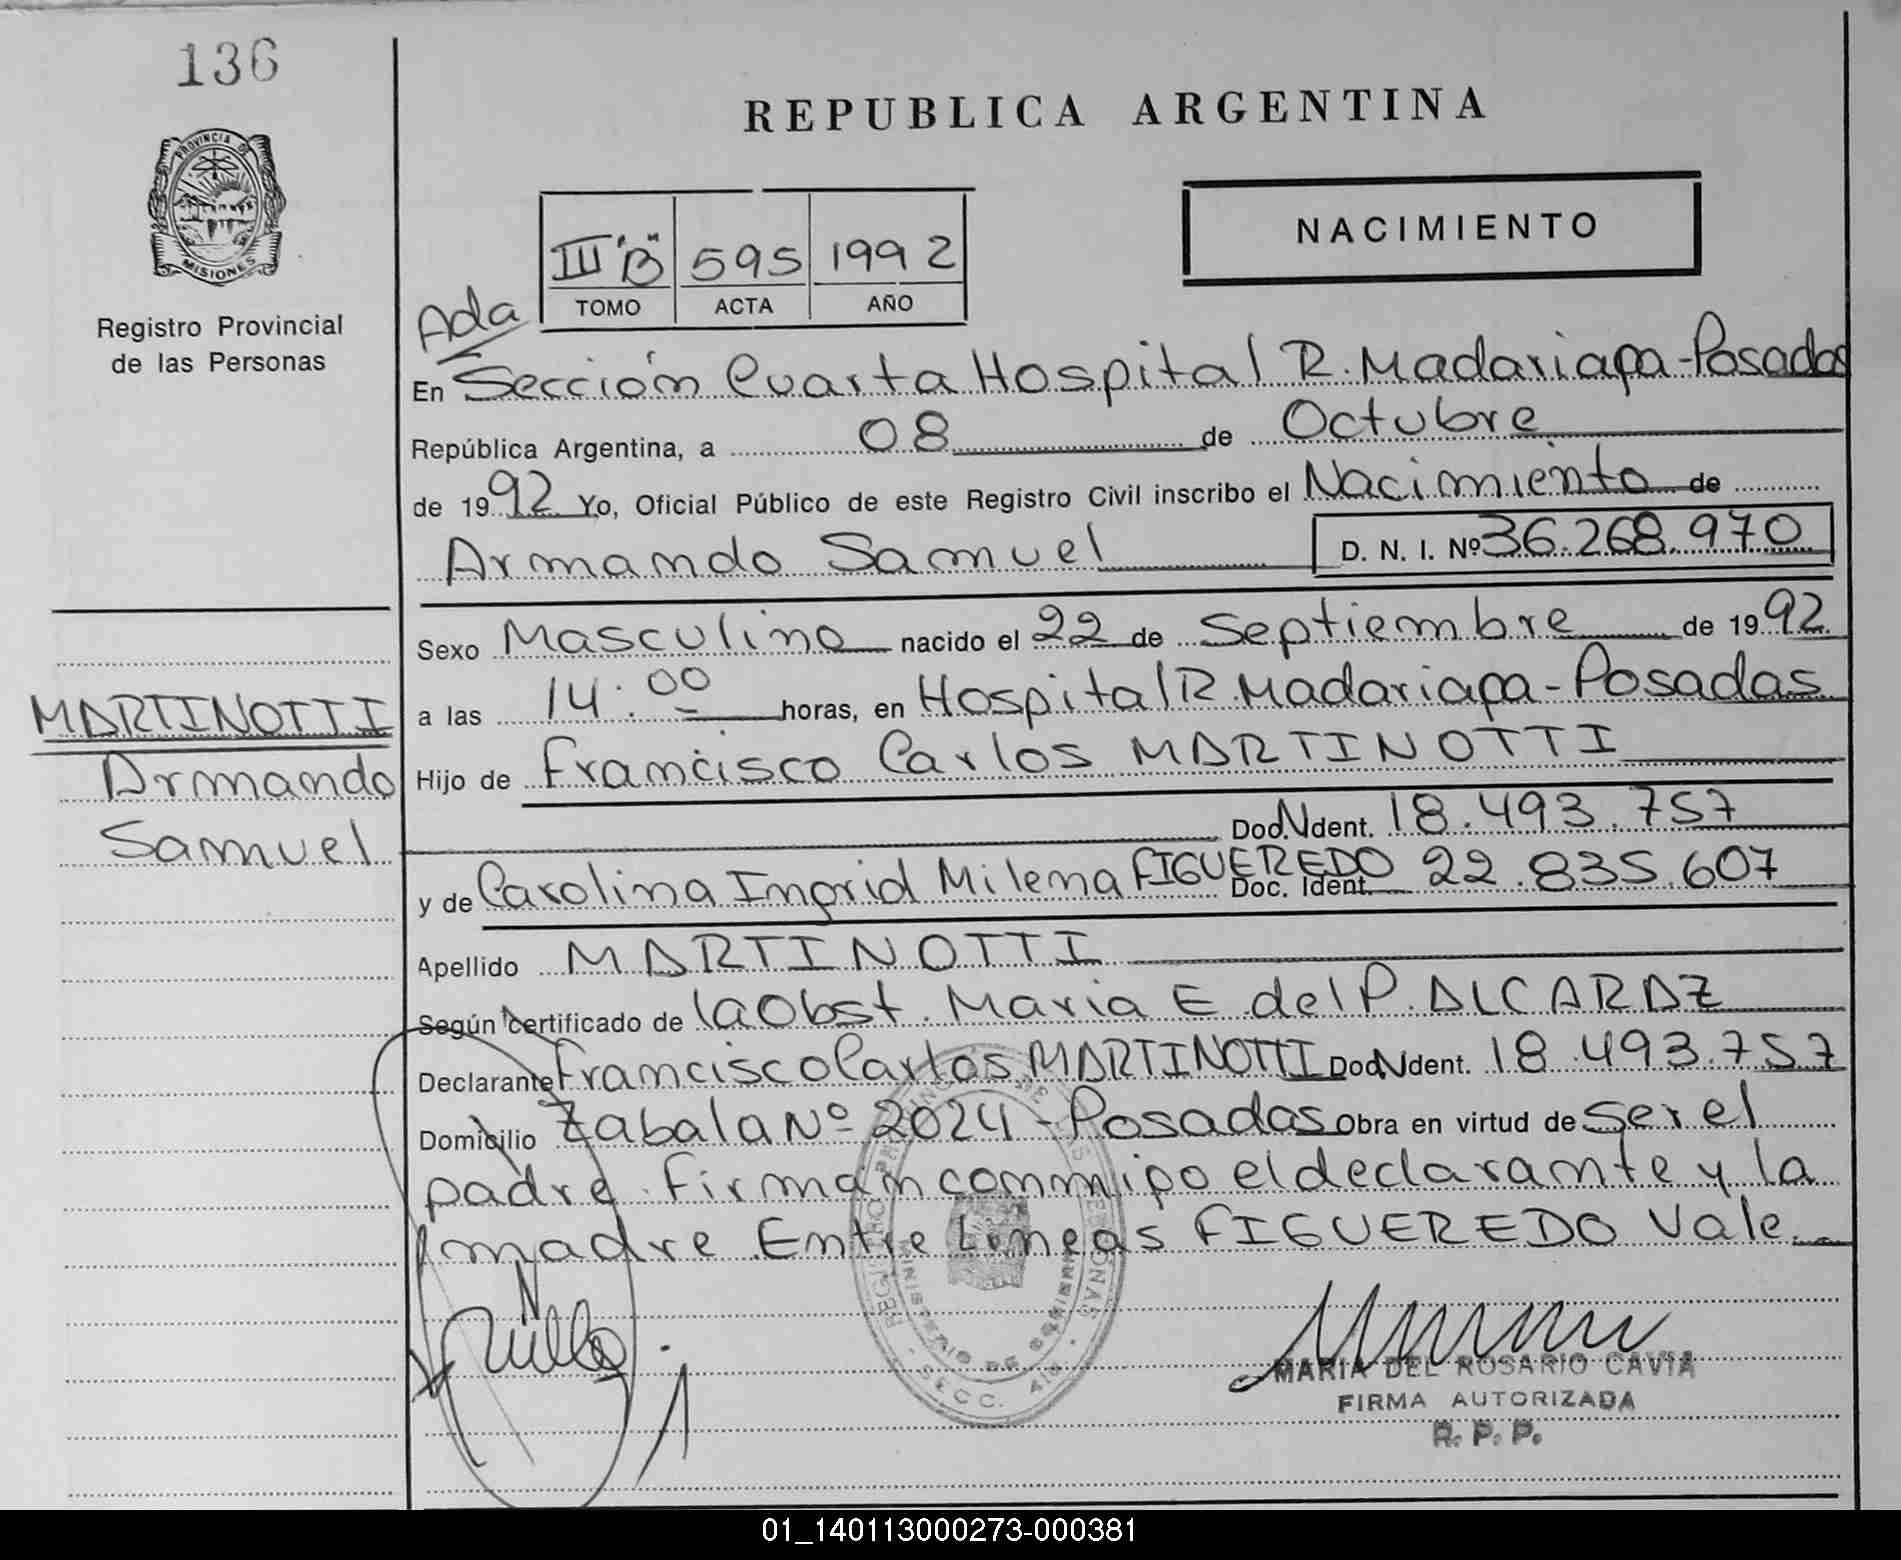 136
PROVINCIA DE
MISIONES
Registro Provincial
de las Personas
REPUBLICA ARGENTINA
NACIMIENTO
III "B" 595 1992
TOMO ACTA AÑO
Ada
En Sección Cuarta Hospital R. Madariaga - Posadas
República Argentina, a 08 de Octubre
de 1992 Yo, Oficial Público de este Registro Civil inscribo el Nacimiento de
Armando Samuel D. N. I. Nº 36.268.970
Sexo Masculino nacido el 22 de Septiembre de 1992
a las 14:00 horas, en Hospital R. Madariaga - Posadas
Hijo de Francisco Carlos MARTINOTTI
Doc. Ident. 18.493.757
y de Carolina Ingrid Milena FIGUEREDO Doc. Ident. 22.835.607
Apellido MARTINOTTI
Según certificado de la Obst. Maria E. del P. ALCARAZ
Declarante Francisco Carlos MARTINOTTI Doc. Ident. 18.493.757
Domicilio Zabala Nº 2024 - Posadas Obra en virtud de ser el
padre. Firman conmigo el declarante y la
madre. Entre Lineas FIGUEREDO Vale.
MARTINOTTI
Armando
Samuel
MARIA DEL ROSARIO CAVIA
FIRMA AUTORIZADA
R. P. P.
REGISTRO PROVINCIAL DE LAS PERSONAS
MINISTERIO DE GOBIERNO
SECC. 4ta
01_140113000273-000381